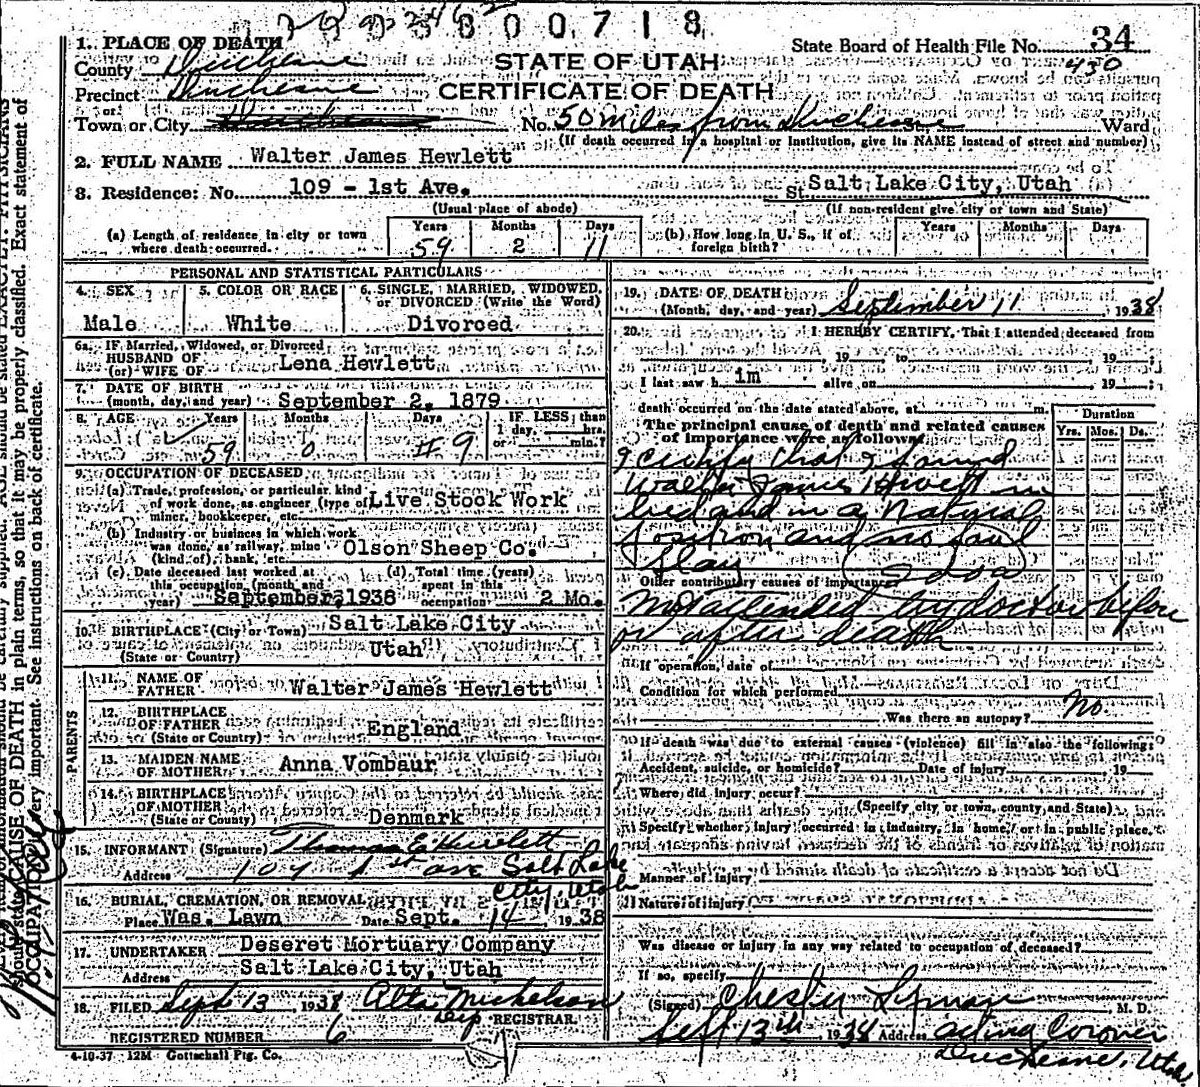 3800718
State Board of Health File No. 34
430
STATE OF UTAH
CERTIFICATE OF DEATH
1. PLACE OF DEATH
County Duchesne
Precinct Duchesne
Town or City No. 50 miles from Duchesne St. Ward
(If death occurred in a hospital or institution, give its NAME instead of street and number)
2. FULL NAME Walter James Hewlett
3. Residence: No. 109 - 1st Ave. St. Salt Lake City, Utah
(Usual place of abode) (If non-resident give city or town and State)
(a) Length of residence in city or town where death occurred. Years 59 Months 2 Days 11
(b) How long in U. S., if of foreign birth? Years Months Days
PERSONAL AND STATISTICAL PARTICULARS
4. SEX Male
5. COLOR OR RACE White
6. SINGLE, MARRIED, WIDOWED, or DIVORCED (Write the Word) Divorced
6a. IF Married, Widowed, or Divorced
HUSBAND OF
(or) WIFE OF Lena Hewlett
7. DATE OF BIRTH
(month, day, and year) September 2, 1879
8. AGE Years 59 Months 0 Days 9 IF LESS than 1 day, hrs. or min.?
9. OCCUPATION OF DECEASED
(a) Trade, profession, or particular kind of work done, as engineer (type of) miner, bookkeeper, etc. Live Stock Work
(b) Industry or business in which work was done, as railway, mine (kind of), bank, etc. Olson Sheep Co.
(c) Date deceased last worked at this occupation (month and year) September, 1938
(d) Total time (years) spent in this occupation 2 Mo.
10. BIRTHPLACE (City or Town) Salt Lake City
(State or Country) Utah
PARENTS
11. NAME OF FATHER Walter James Hewlett
12. BIRTHPLACE OF FATHER (State or Country) England
13. MAIDEN NAME OF MOTHER Anna Vombaur
14. BIRTHPLACE OF MOTHER (State or Country) Denmark
15. INFORMANT (Signature) Thomas E Hewlett
Address 109 1st ave Salt Lake City, Utah
16. BURIAL, CREMATION, OR REMOVAL
Place Was. Lawn Date Sept. 14 1938
17. UNDERTAKER Deseret Mortuary Company
Address Salt Lake City, Utah
18. FILED Sept 13 1938 Alta Michelson
Dep REGISTRAR.
REGISTERED NUMBER 6
4-10-37 12M Gottschall Ptg. Co.
19. DATE OF DEATH
(Month, day, and year) September 11 1938
20. I HEREBY CERTIFY, That I attended deceased from
19 to 19
I last saw h im alive on 19
death occurred on the date stated above, at m.
The principal cause of death and related causes of importance were as follows:
Duration
Yrs. Mos. Ds.
I certify that I found
Walter James Hewlett in
bed and in a Natural
position and no foul
Play
Other contributory causes of importance
Not attended by doctor before
or after death
If operation, date of
Condition for which performed
Was there an autopsy? No
If death was due to external causes (violence) fill in also the following:
Accident, suicide, or homicide? Date of injury 19
Where did injury occur?
(Specify city or town, county, and State)
Specify whether injury occurred in industry, in home, or in public place.
Manner of injury
Nature of injury
Was disease or injury in any way related to occupation of deceased?
If so, specify
(Signed) Chester Lyman M. D.
Sept 13th 1938 Address acting Coroner
Duchesne, Utah